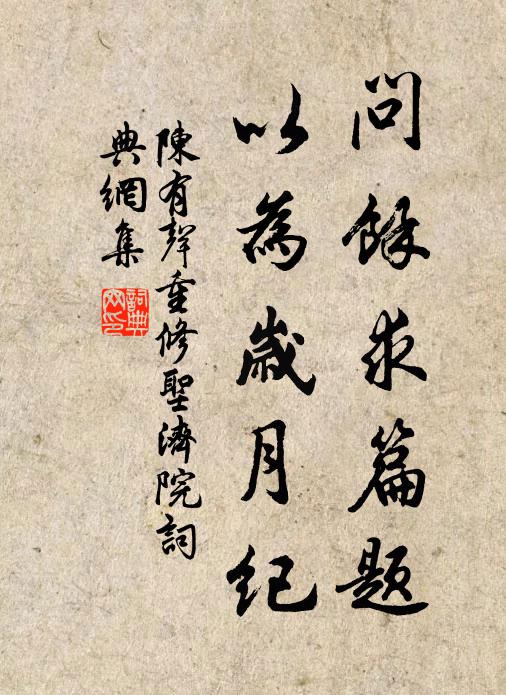 問餘求篇題
以為歲月紀
陳有聲重修聖濟院詞
典網集
詞典
网印